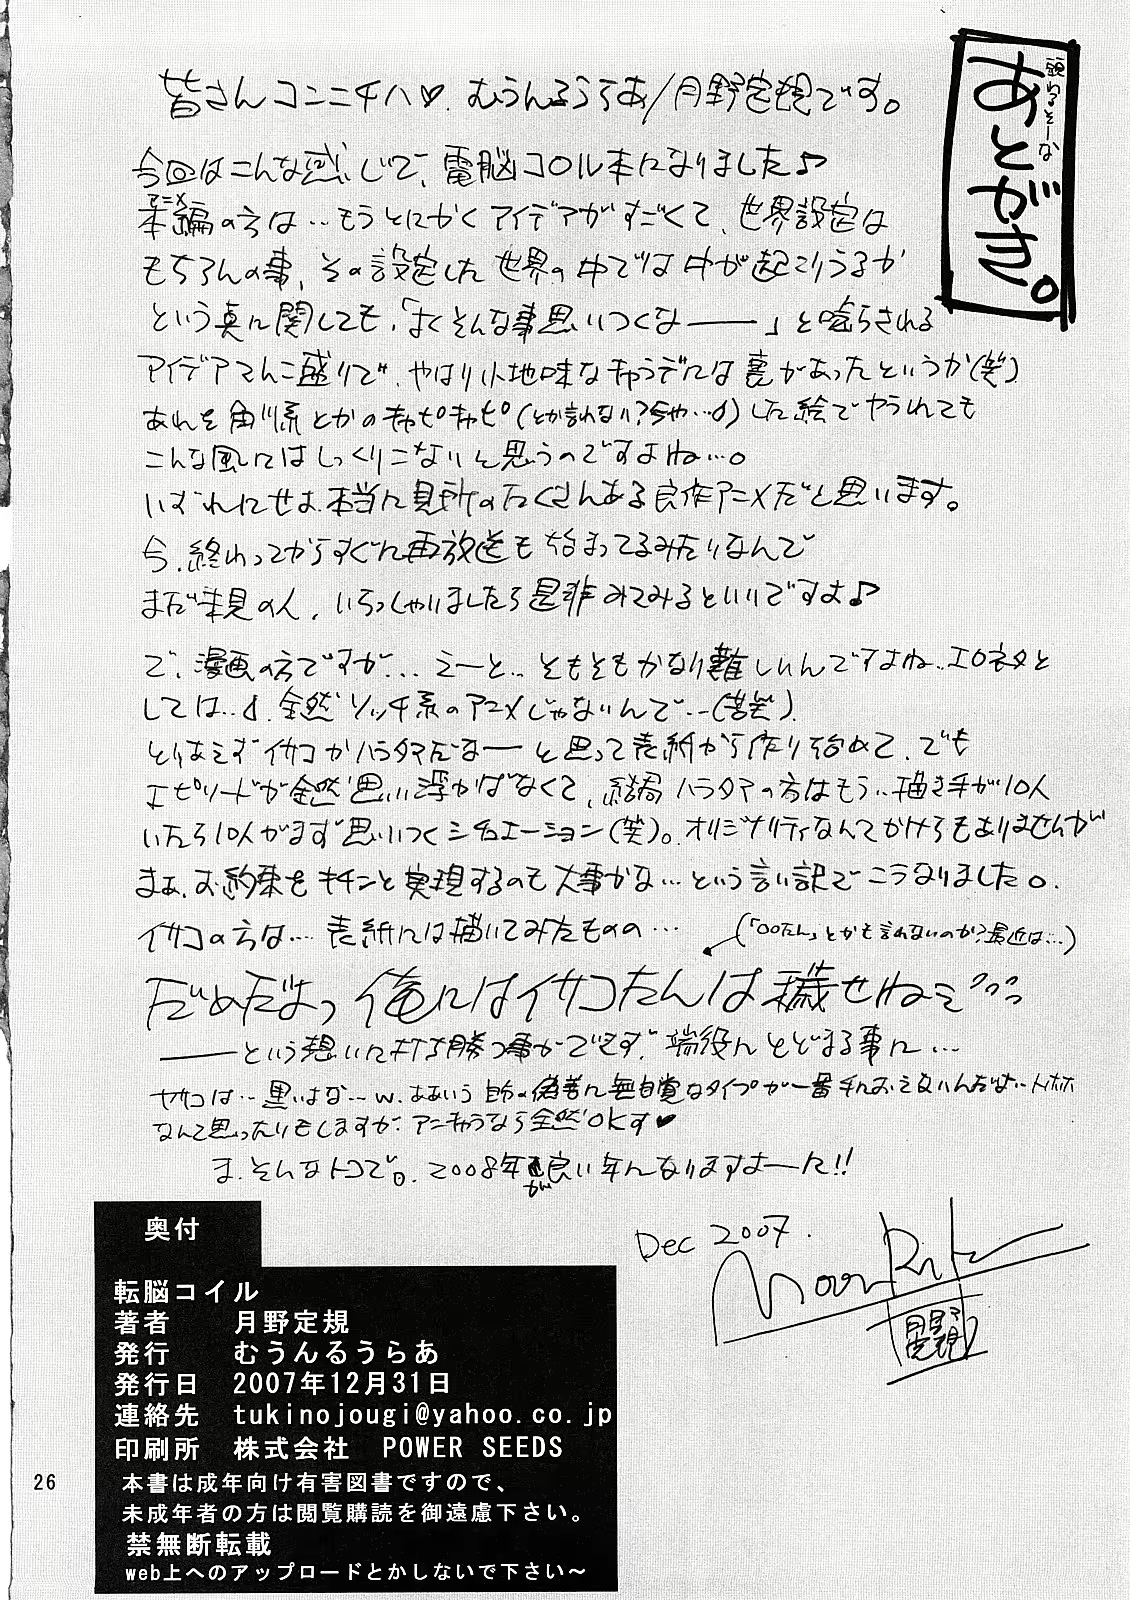 頭わるそーな
あとがき。
皆さんコンニチハ♡. むうんるうらあ/月野定規です。
今回はこんな感じで、電脳コイル本になりました♪
アニメ
本編の方は…もうとにかくアイデアがすごくて、世界設定は
もちろんの事、その設定した世界の中では何が起こりうるか
という点に関しても、「よくそんな事思いつくなー」と唸らされる
アイデアてんこ盛りで、やはり小地味なキャラデには裏があったというか(笑)
あれを角川系とかのキャピキャピ(とか言わない?ちゃ…♂)した絵でやられても
こんな風にはしっくりこないと思うのですよね…。
いずれにせよ、本当に見所のたくさんある良作アニメだと思います。
今、終わってからすぐに再放送も始まってるみたいなんで
まだ未見の人、いらっしゃいましたら是非みてみるといいですよ♪
で、漫画の方ですが…えーと…ともそもかなり難しいんですよね…エロネタと
しては…♂. 全然ソッチ系のアニメじゃないんで…(苦笑).
とりあえずイサコかハラタマだなーと思って表紙から作り始めて、でも
エピソードが全然思い浮かばなくて、結局ハラタマの方はもう…描き手が10人
いたら10人がまず思いつくシチュエーション(笑)。オリジナリティなんてかけらもありませんが
まぁ、お約束をキチンと実現するのも大事かな…という言い訳でこうなりました。
イサコの方は…表紙には描いてみたものの…
(「○○たん」とかも言わないのか?最近は…)
だめだよっ俺にはイサコたんは穢せねぇ…
――という想いに打ち勝つ事かできず、端役にとどまる事に…
ヤサコは…黒いよな…w. ああいう自分の偽善に無自覚なタイプが一番手におえないんだよ…トホホ
なんて思ったりもしますが、アニキャラなら全然OKす♥
ま、そんなトコで。2008年が良い年になりますよーに!!
Dec 2007.
月野定規
奥付
転脳コイル
著者 月野定規
発行 むうんるうらあ
発行日 2007年12月31日
連絡先 tukinojougi@yahoo.co.jp
印刷所 株式会社 POWER SEEDS
本書は成年向け有害図書ですので、
未成年者の方は閲覧購読を御遠慮下さい。
禁無断転載
web上へのアップロードとかしないで下さい～
26